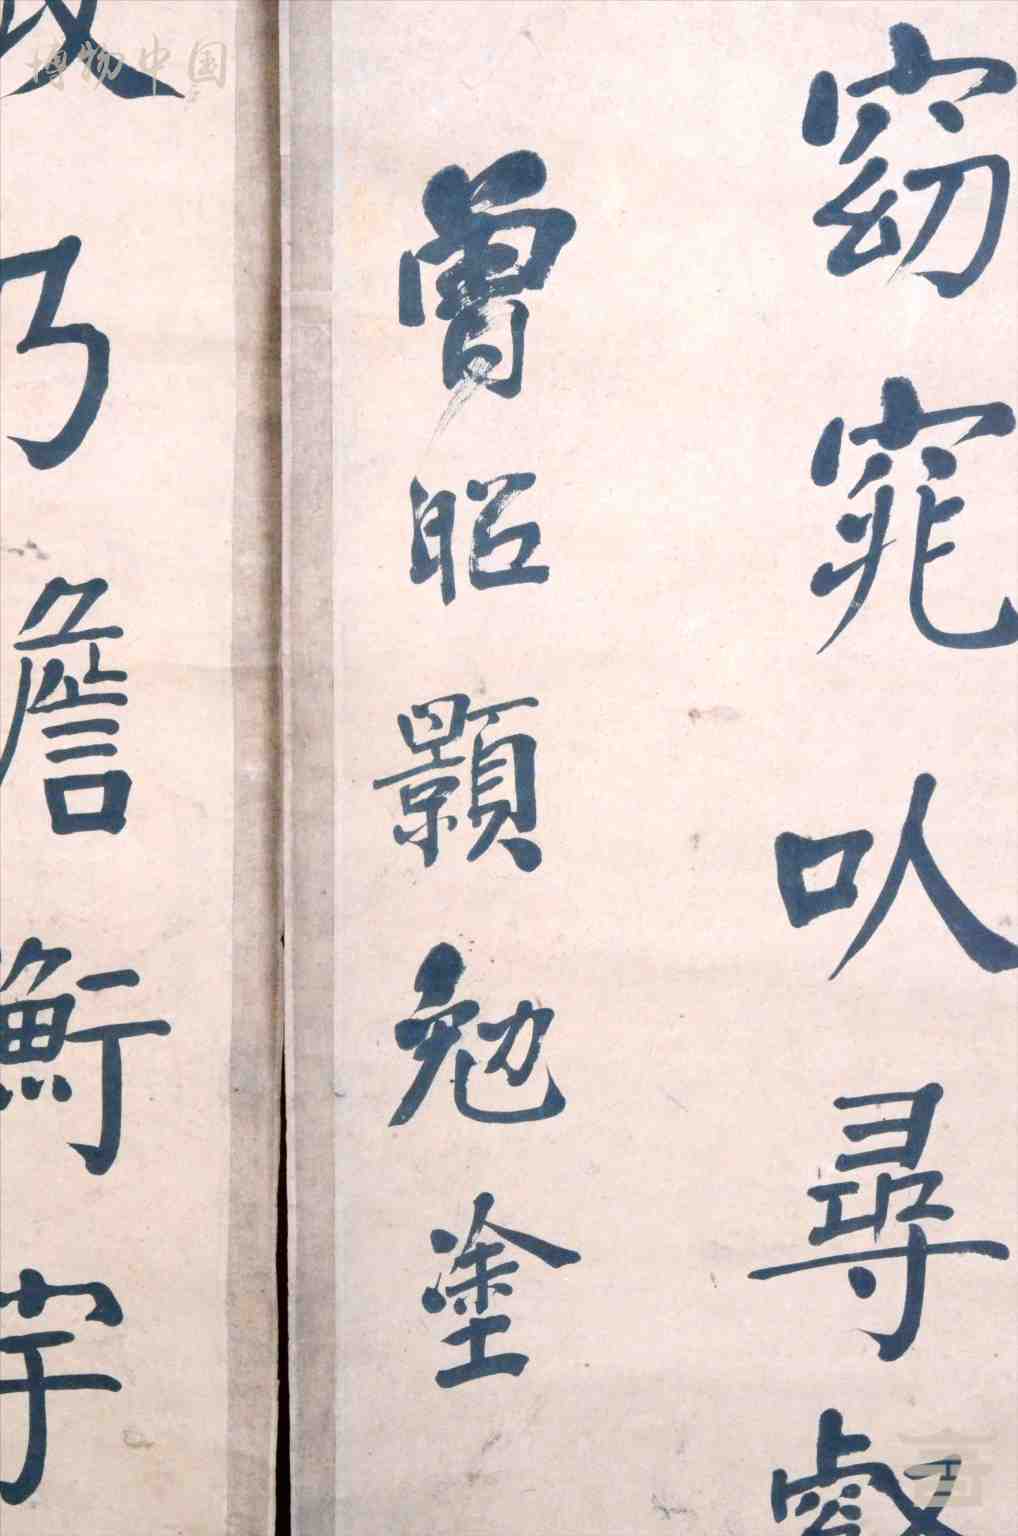 窈窕以尋壑
曾昭顥勉塗
乃詹衡宇
博物中国